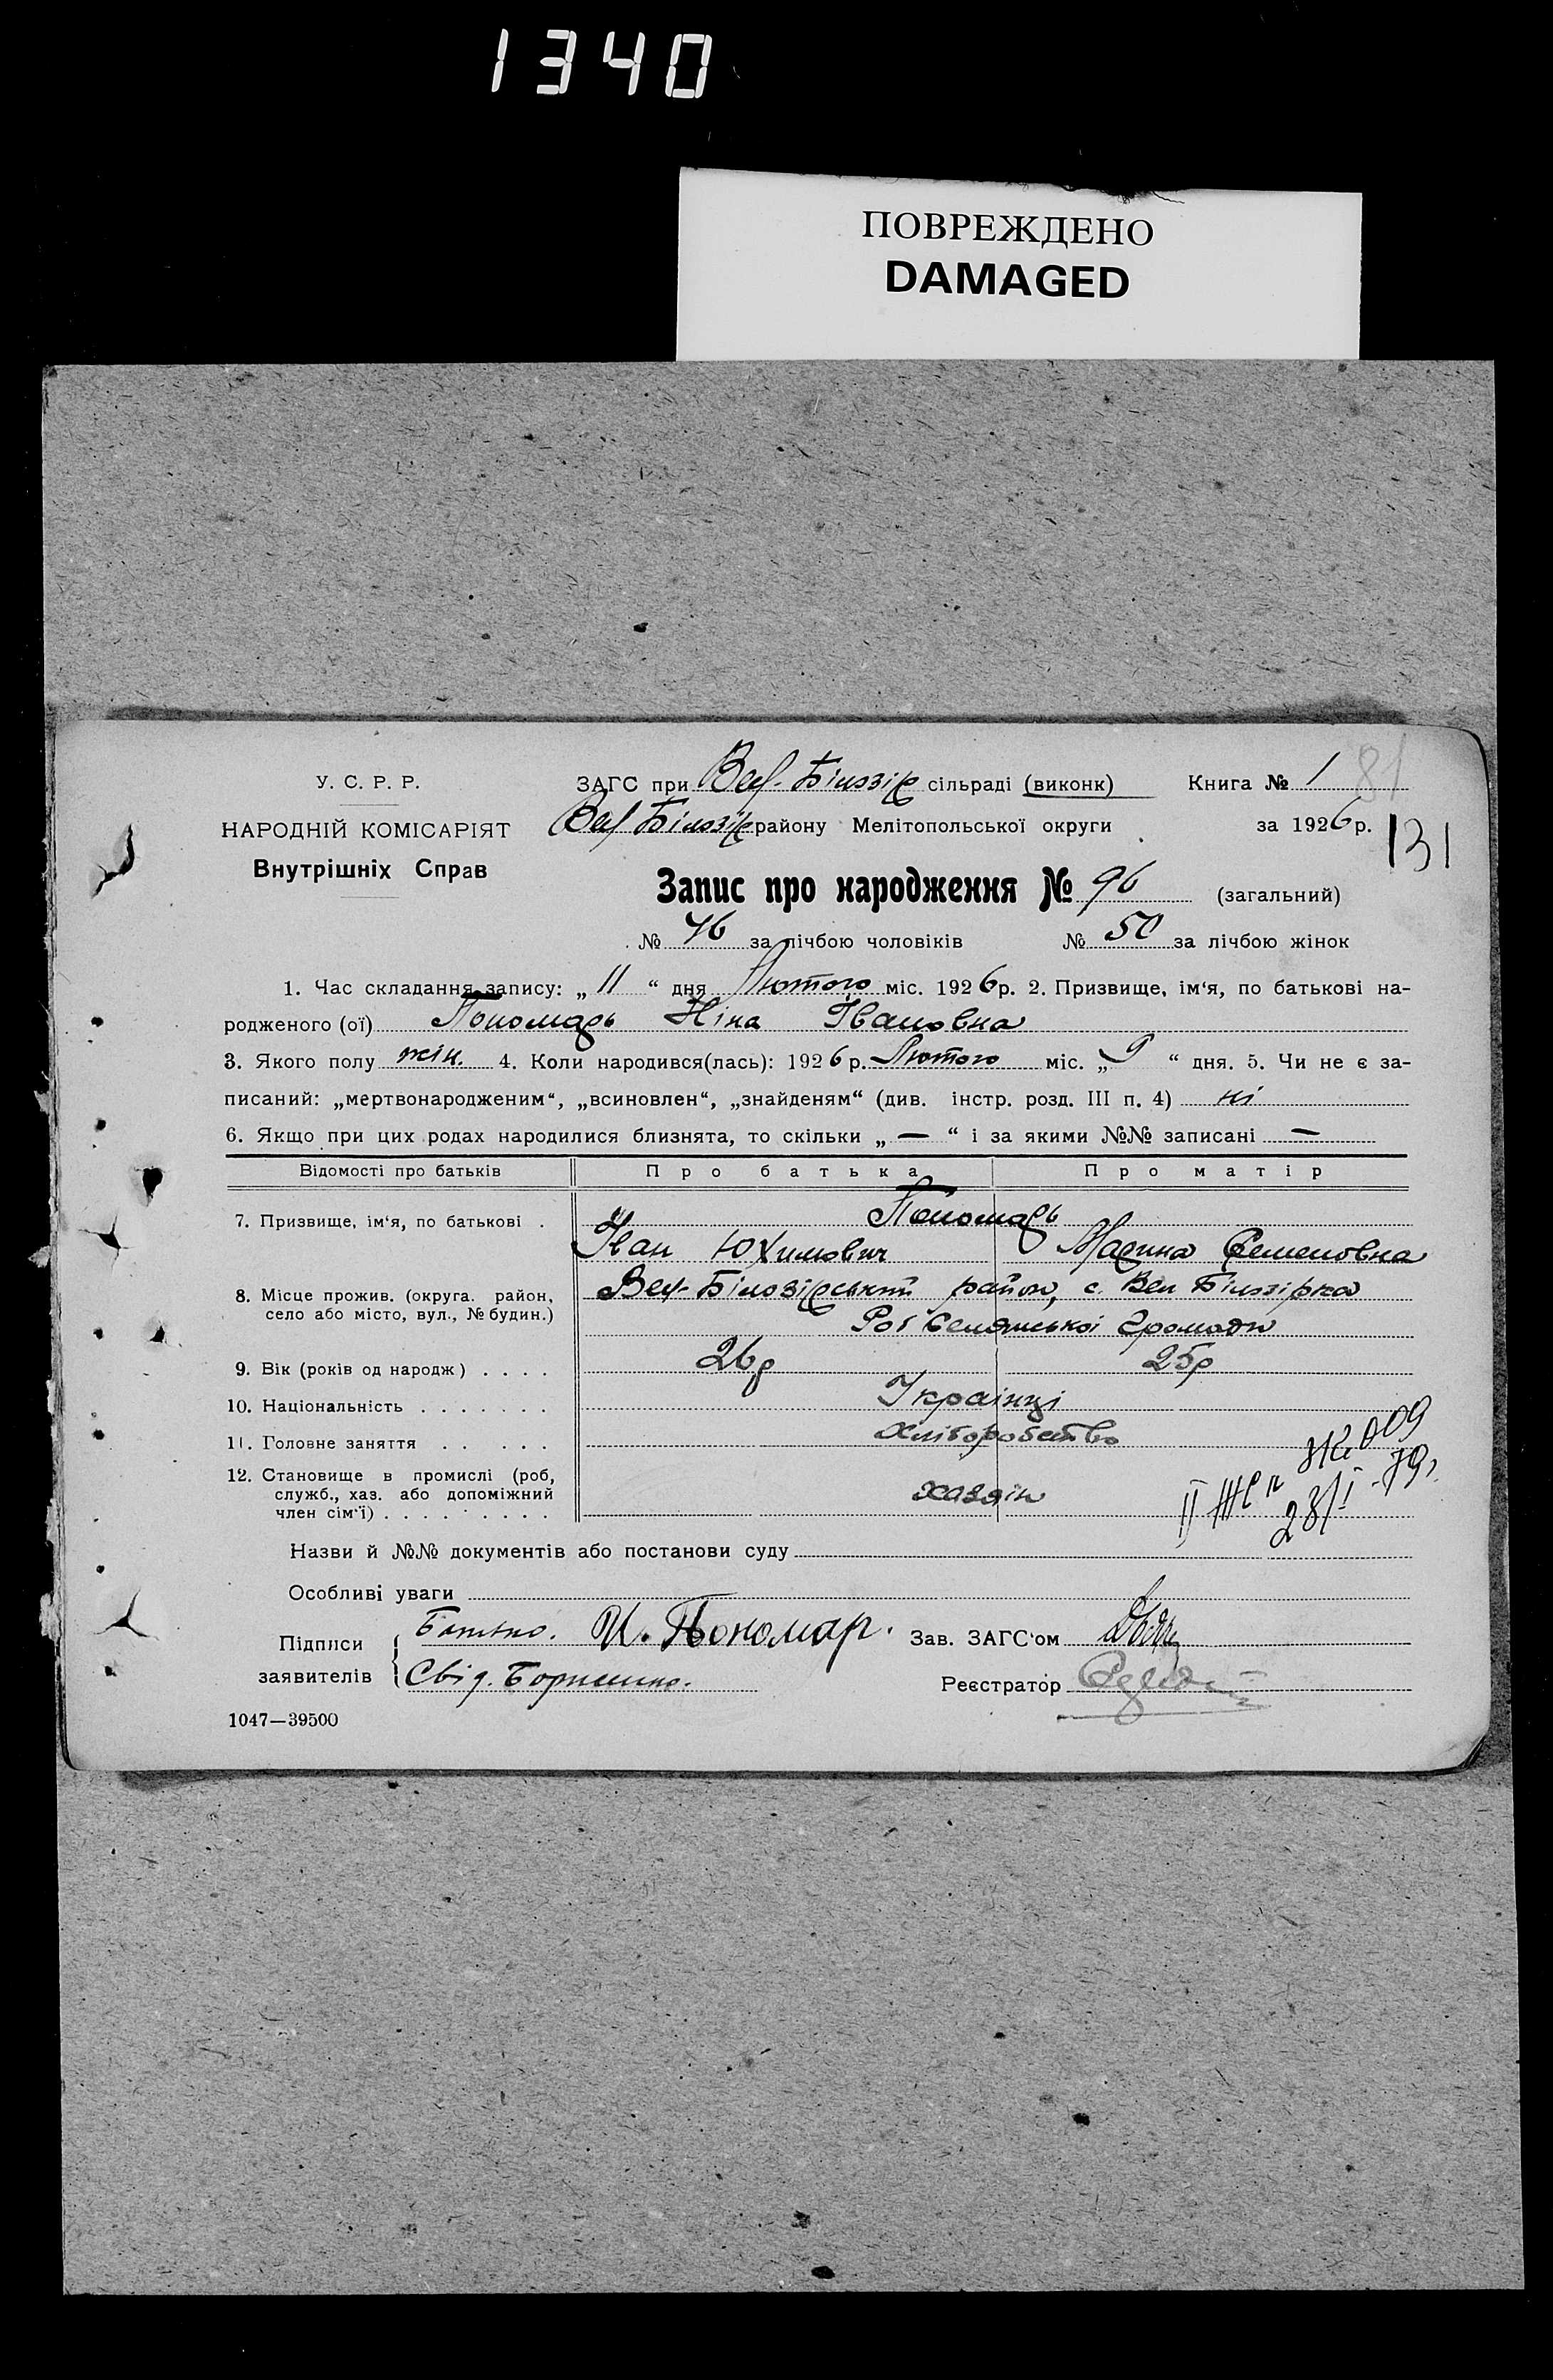 1340
ПОВРЕЖДЕНО
DAMAGED
У. С. Р. Р.
НАРОДНІЙ КОМІСАРІЯТ
Внутрішніх Справ
ЗАГС при Вел-Білозір сільраді (виконк) Книга № 1 81
Вел Білозір району Мелітопольської округи за 1926 р.
131
Запис про народження № 96 (загальний)
№ 46 за лічбою чоловіків № 50 за лічбою жінок
1. Час складання запису: „ 11 “ дня Лютого міс. 1926 р. 2. Призвище, ім‘я, по батькові на-
родженого (ої) Пономарь Ніна Івановна
3. Якого полу жін. 4. Коли народився(лась): 1926 р. Лютого міс. „ 9 “ дня. 5. Чи не є за-
писаний: „мертвонародженим“, „всиновлен“, „знайденям“ (див. інстр. розд. III п. 4) ні
6. Якщо при цих родах народилися близнята, то скільки „ — “ і за якими №№ записані —
Відомості про батьків Про батька Про матір
7. Призвище, ім‘я, по батькові . Пономарь
Іван Юхимович Марина Семеновна
8. Місце прожив. (округа. район, село або місто, вул., № будин.) Вел-Білозірський район, с. Вел Білозірка
Рог Селянської Громади
9. Вік (років од народж) . . . . 26р 25р
10. Національність . . . . . . . Українці
11. Головне заняття . . . . . Хліборобство
12. Становище в промислі (роб,
служб., хаз. або допоміжний
член сім‘ї) . . . . . . . . . хазяін
28/I-79
Назви й №№ документів або постанови суду
Особливі уваги
Підписи
заявителів
Батько. И. Пономар. Зав. ЗАГС‘ом
Свід. Реєстратор
1047—39500